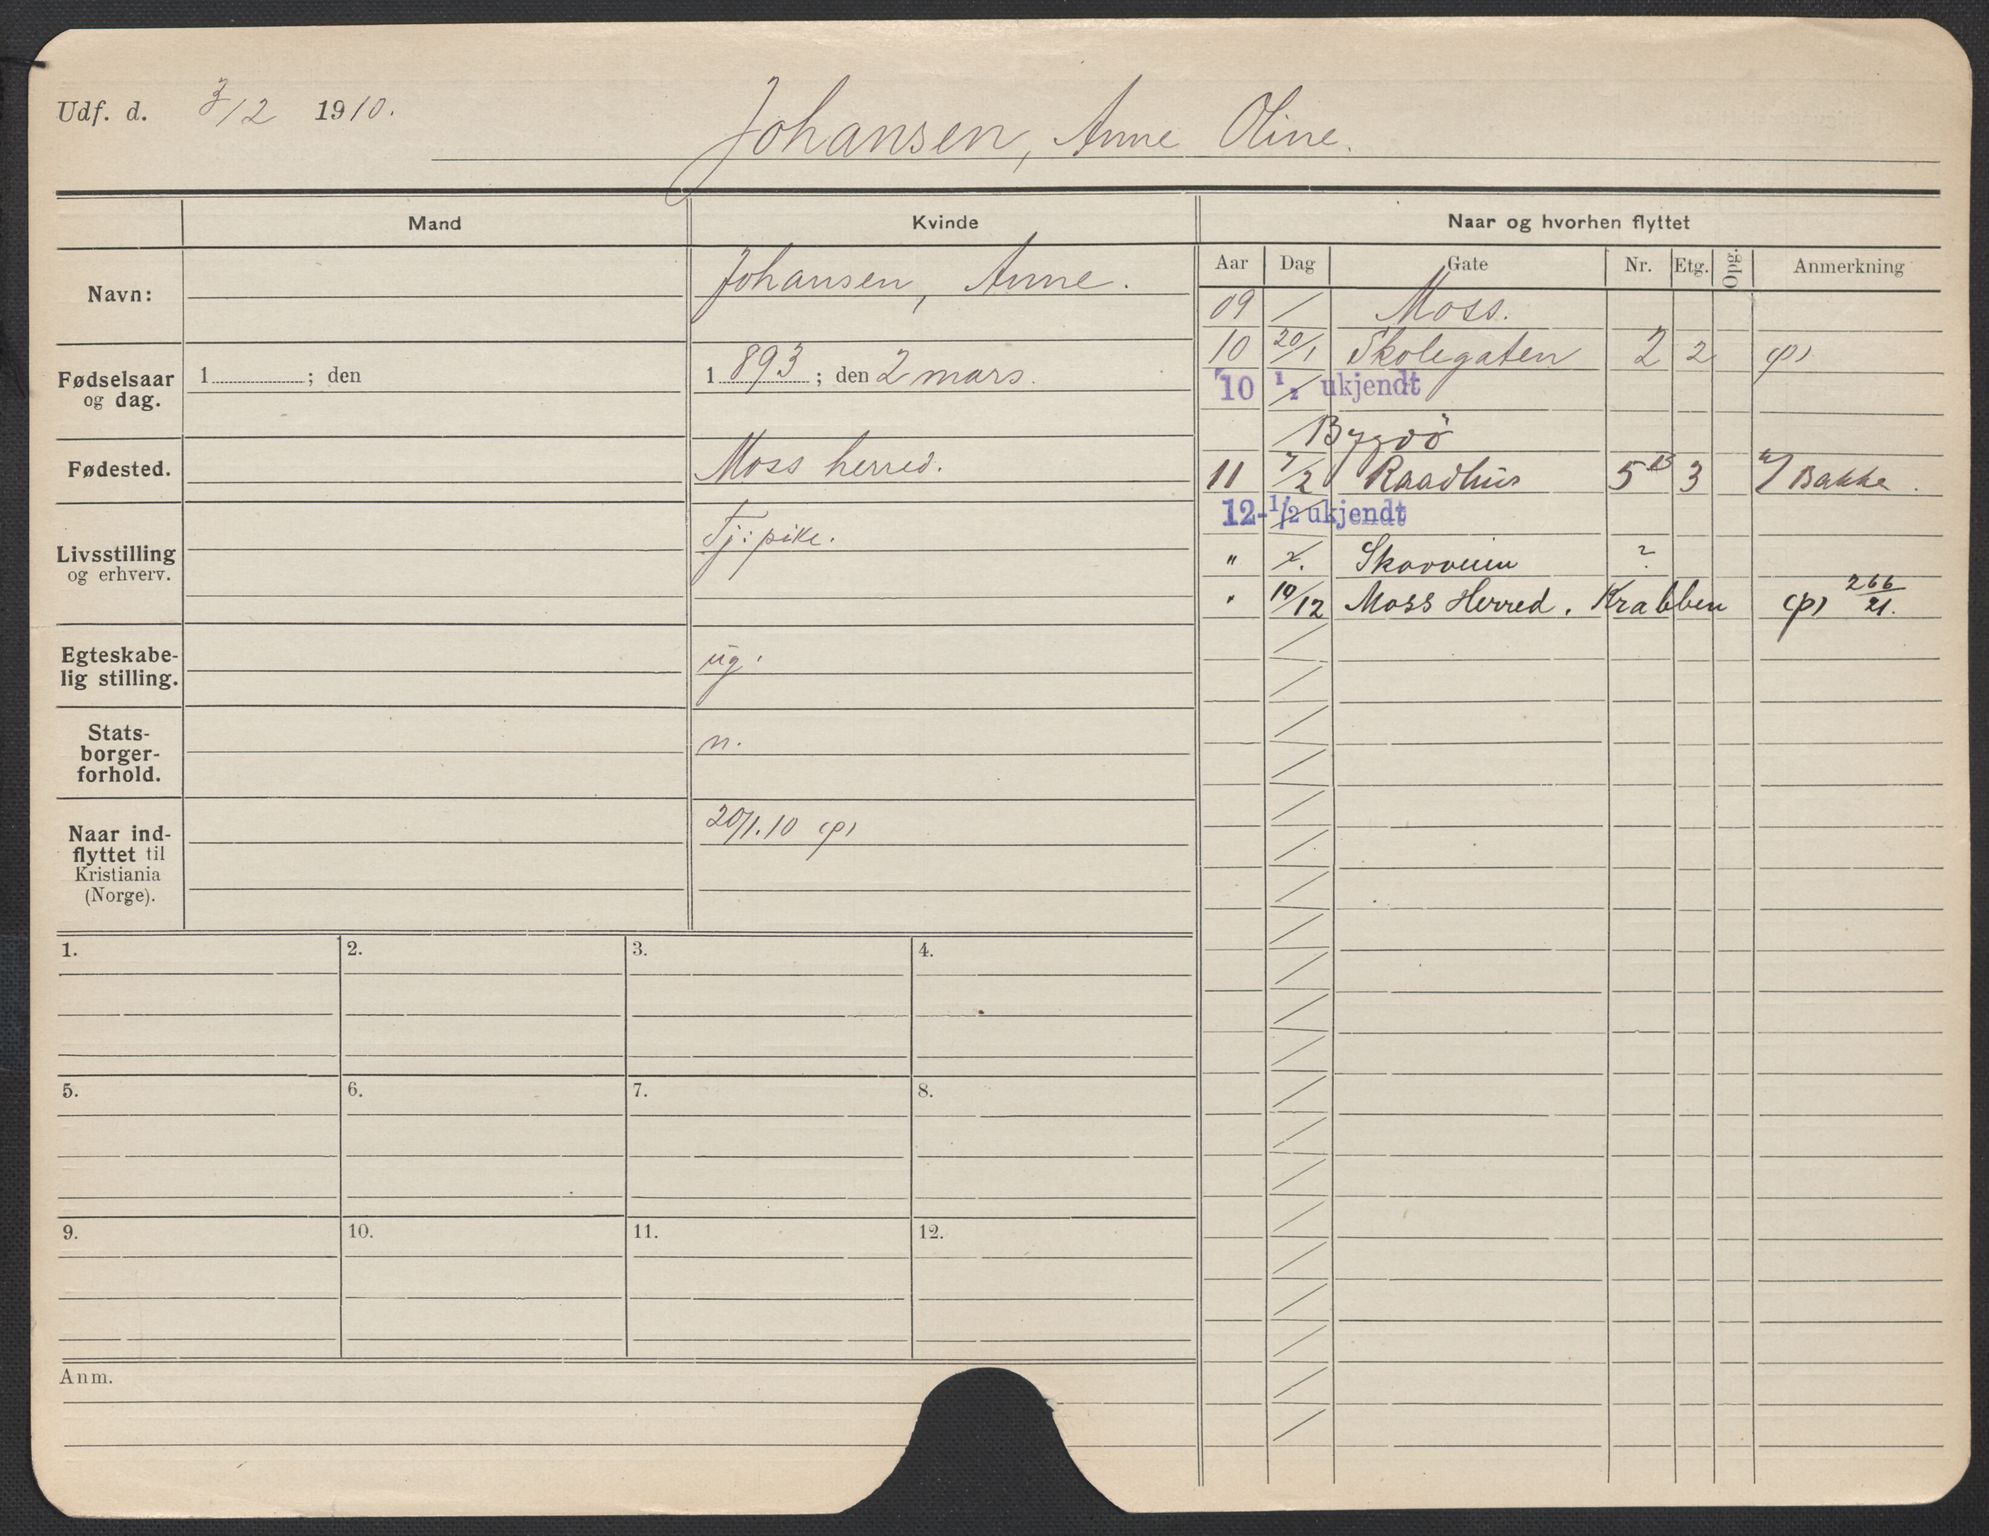 Udf. d. 3/12 1910.
Johansen, Anne Oline.
Mand
Kvinde
Naar og hvorhen flyttet
Aar Dag Gate Nr. Etg. Opg. Anmerkning
Navn:
Johansen, Anne.
Fødselsaar og dag.
1 ; den
1893 ; den 2 mars.
Fødested.
Moss herred.
Livsstilling og erhverv.
Tj: pike.
Egteskabe-
lig stilling.
ug.
Stats-
borger-
forhold.
n.
Naar ind-
flyttet til
Kristiania
(Norge).
20/1.10 (p)
09 / Moss.
10 20/1 Skolegaten 2 2 (p)
'10 1/2 ukjendt
/ Bygdö
11 7/2 Raadhus 5 B 3 v/ Bakke.
12-1/2 ukjendt
" 2/. Skovveien ?
" 10/12 Moss Herred. Krabben (p) 266/21.
1. 2. 3. 4.
5. 6. 7. 8.
9. 10. 11. 12.
Anm.